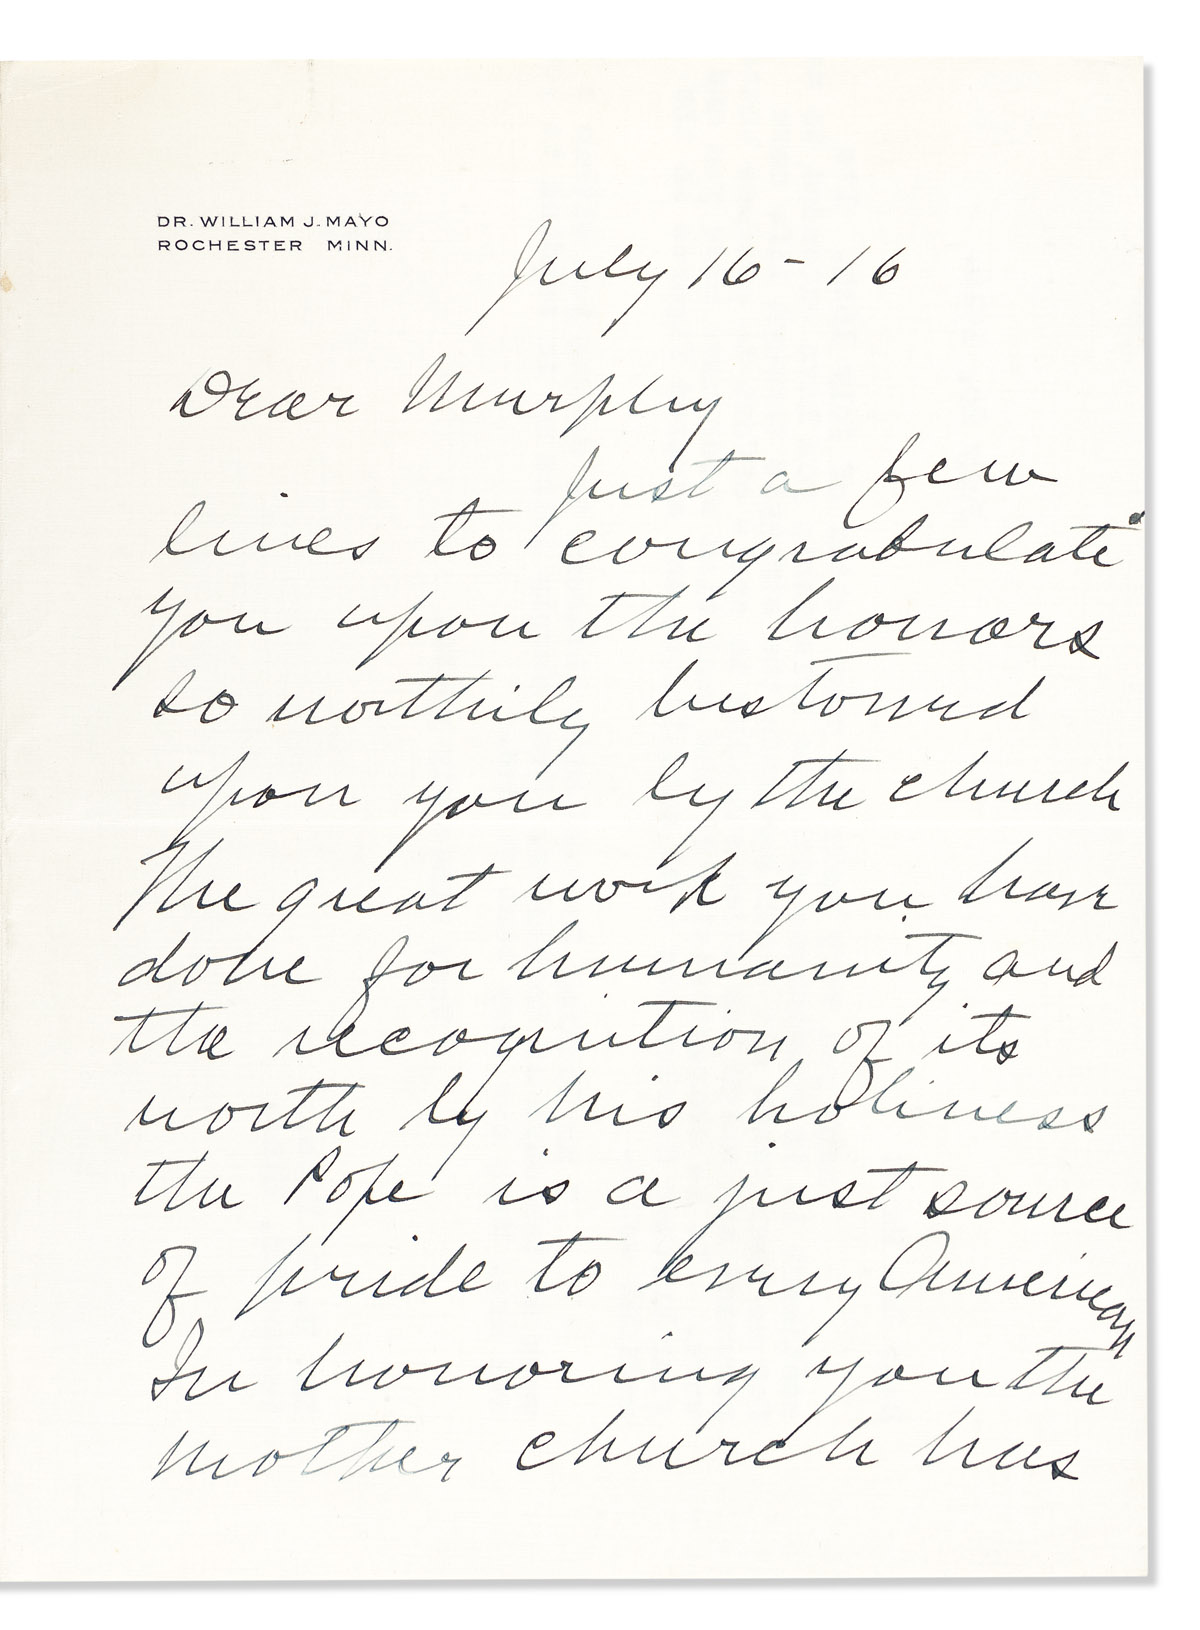 DR. WILLIAM J. MAYO
ROCHESTER MINN.
July 16 - 16
Dear Murphy
Just a few
lines to congratulate
you upon the honors
so worthily bestowed
upon you by the church
The great work you have
done for humanity and
the recognition of its
worth by his holiness
the Pope is a just source
of pride to every American
In honoring you the
mother church has